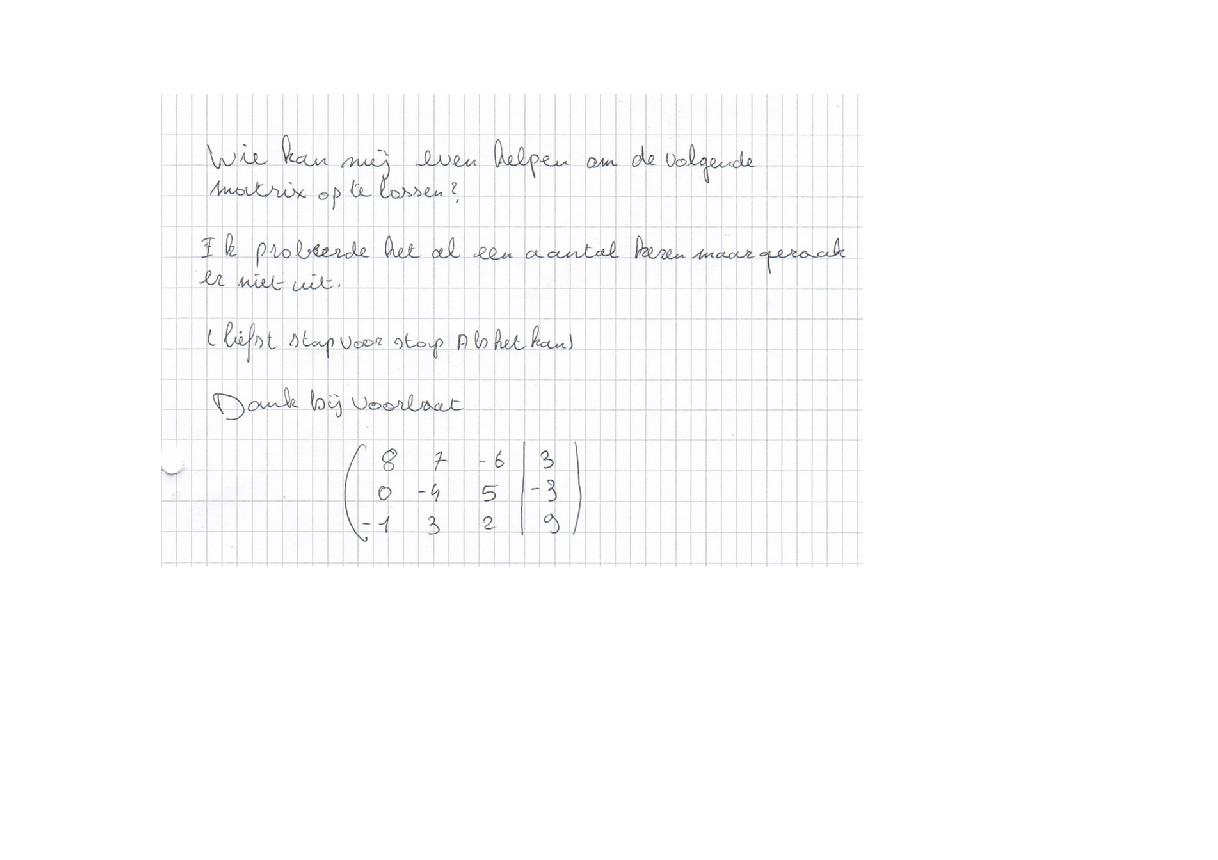 Wie kan mij even helpen om de volgende
matrix op te lossen?
Ik probeerde het al een aantal keren maar geraak
er niet uit.
(liefst stap voor stap Als het kan)
Dank bij voorbaat
8 7 -6 | 3
0 -4 5 | -3
-1 3 2 | 9